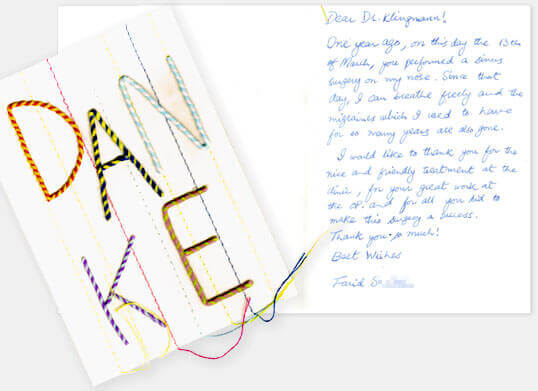 DAN
KE
Dear Dr. Klingmann!
One year ago, on this day the 13th
of March, you performed a sinus
surgery on my nose. Since that
day, I can breathe freely and the
migraines which I used to have
for so many years are also gone.
I would like to thank you for the
nice and friendly treatment at the
clinic, for your great work at
the OP and for all you did to
make this surgery a success.
Thank you so much!
Best Wishes
Farid S